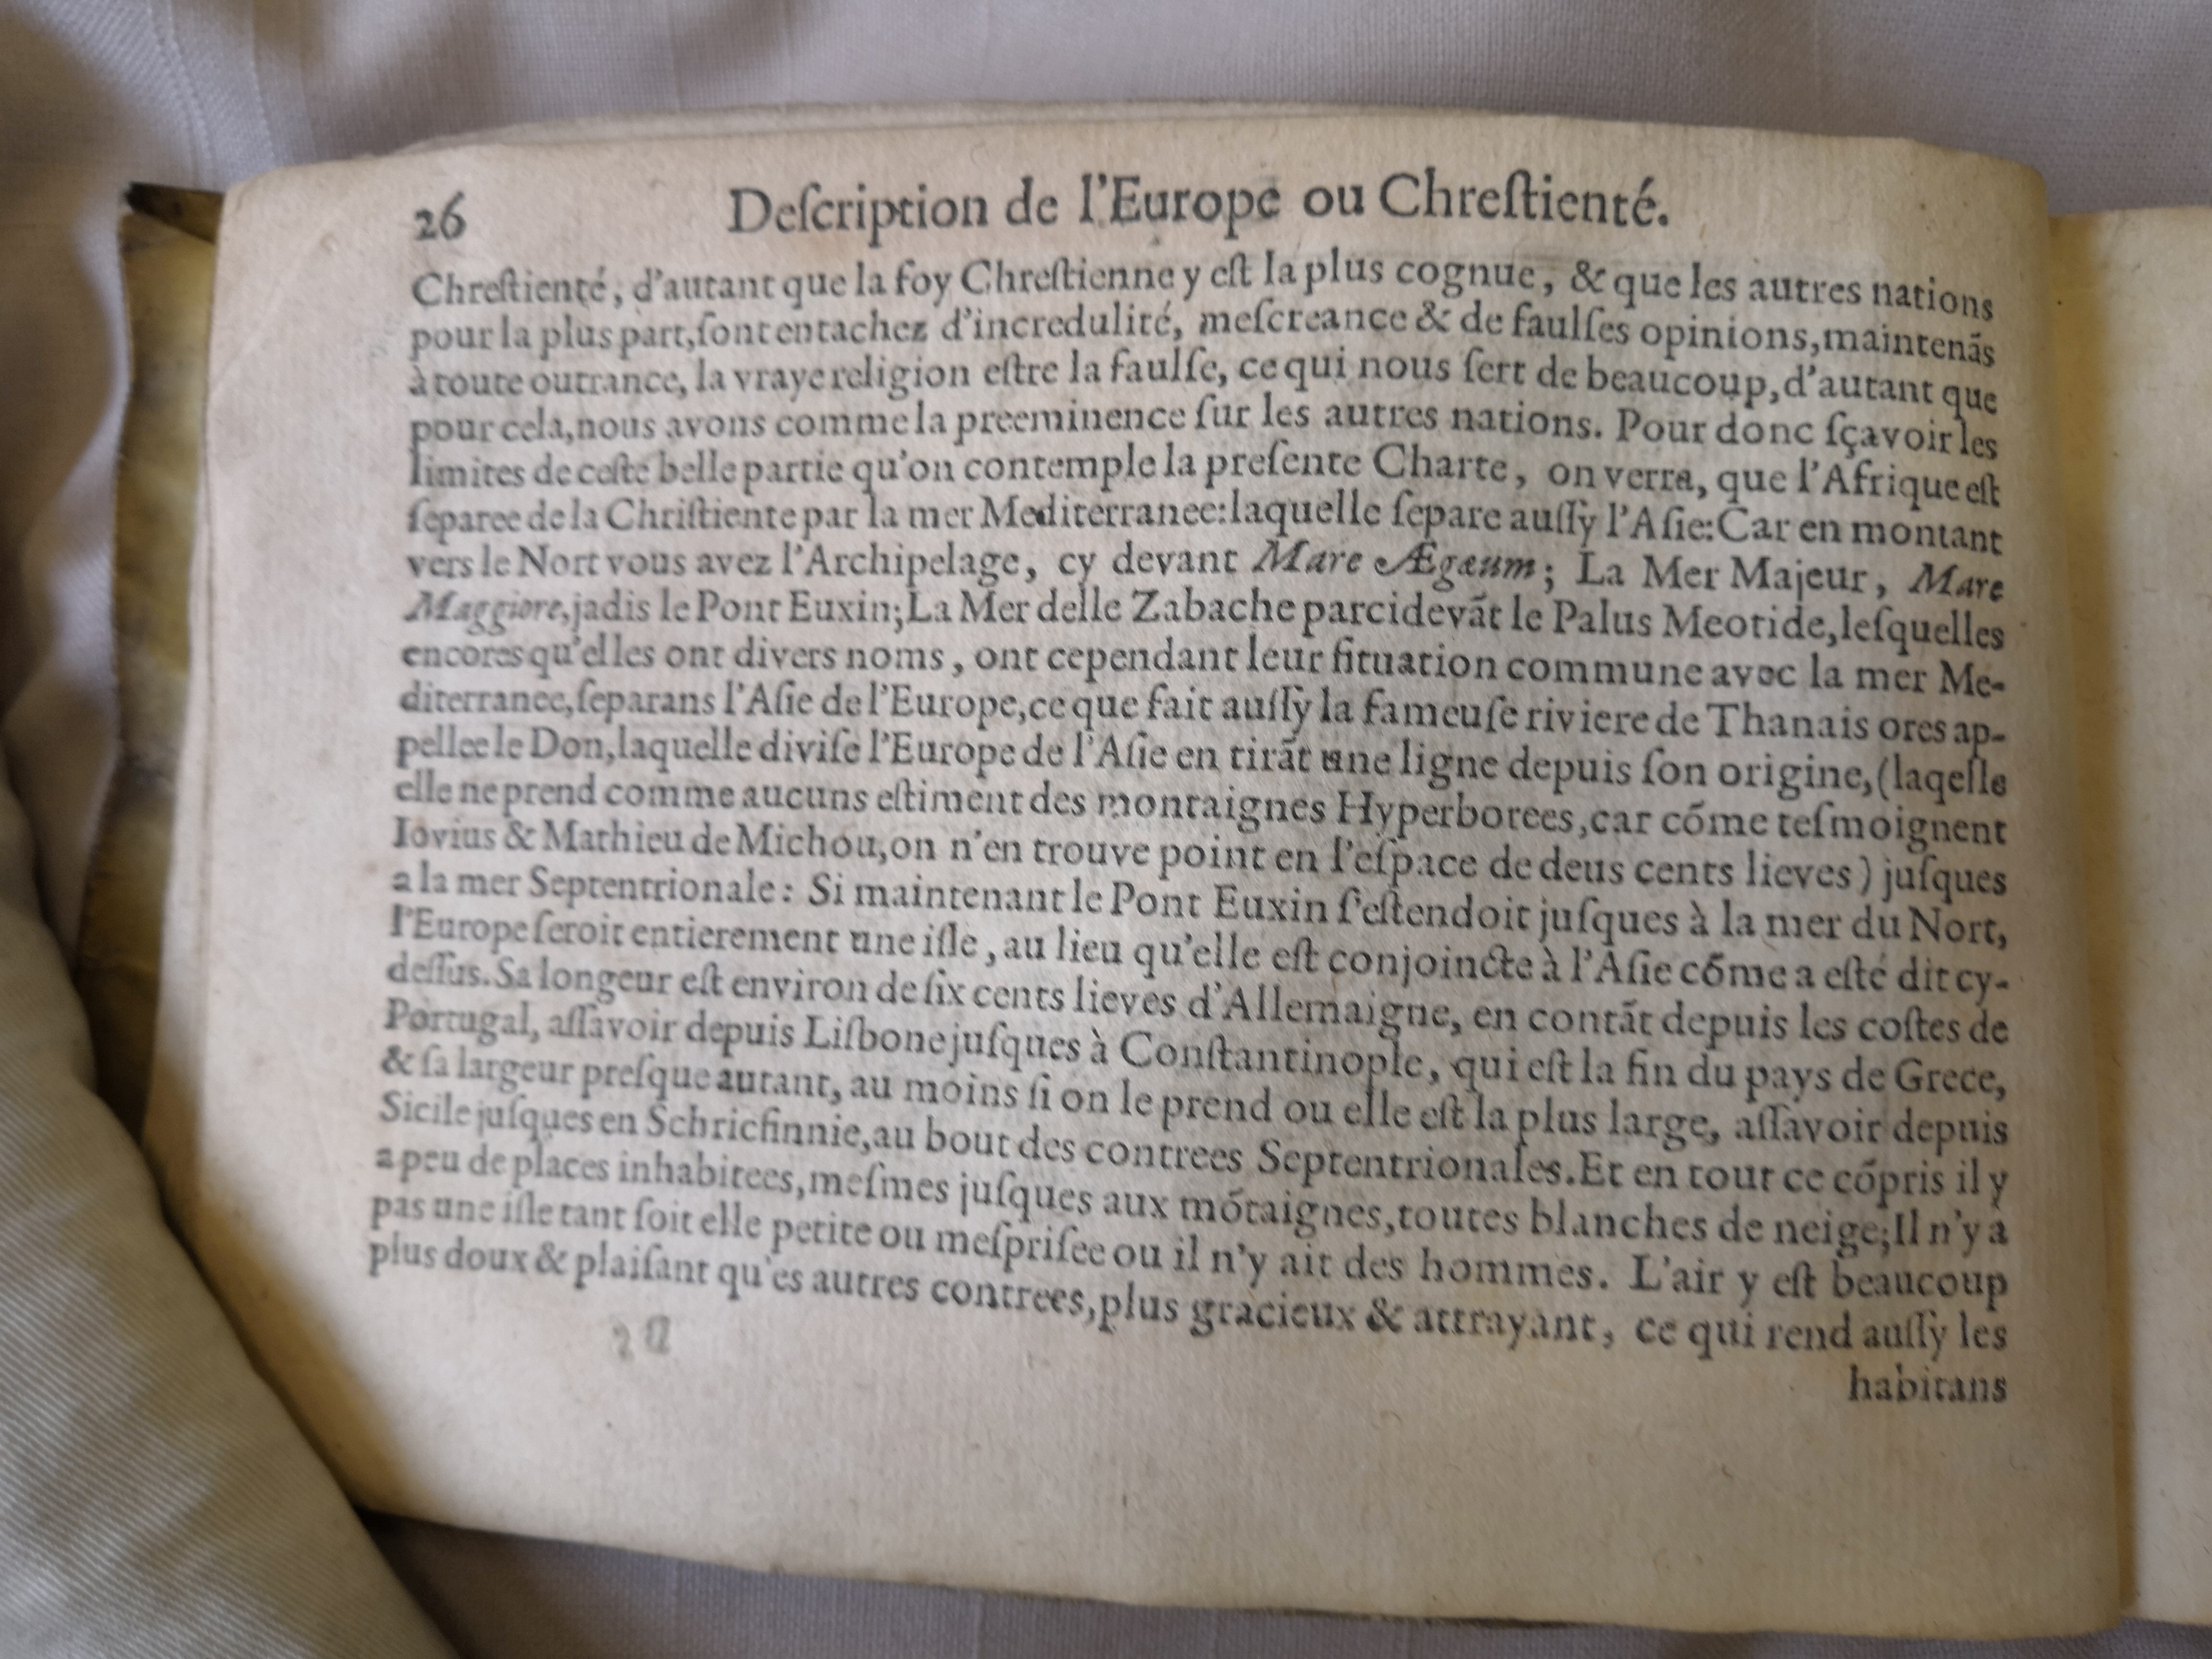 26 Deſcription de l'Europe ou Chreſtienté.
Chreſtienté, d'autant que la foy Chreſtienne y eſt la plus cognue, & que les autres nations
pour la plus part, ſont entachez d'incredulité, meſcreance & de faulſes opinions, maintenãs
à toute outrance, la vraye religion eſtre la faulſe, ce qui nous ſert de beaucoup, d'autant que
pour cela, nous avons comme la preeminence ſur les autres nations. Pour donc ſçavoir les
limites de ceſte belle partie qu'on contemple la preſente Charte, on verra, que l'Afrique eſt
ſeparee de la Chriſtiente par la mer Mediterranee: laquelle ſepare auſſy l'Aſie: Car en montant
vers le Nort vous avez l'Archipelage, cy devant Mare Ægæum; La Mer Majeur, Mare
Maggiore, jadis le Pont Euxin; La Mer delle Zabache parcidevãt le Palus Meotide, leſquelles
encores qu'elles ont divers noms, ont cependant leur ſituation commune avec la mer Me-
diterranee, ſeparans l'Aſie de l'Europe, ce que fait auſſy la fameuſe riviere de Thanais ores ap-
pellee le Don, laquelle diviſe l'Europe de l'Aſie en tirãt une ligne depuis ſon origine, (laqelle
elle ne prend comme aucuns eſtiment des montaignes Hyperborees, car cõme teſmoignent
Iovius & Mathieu de Michou, on n'en trouve point en l'eſpace de deus cents lieves) juſques
a la mer Septentrionale: Si maintenant le Pont Euxin ſ'eſtendoit juſques à la mer du Nort,
l'Europe ſeroit entierement une iſle, au lieu qu'elle eſt conjoincte à l'Aſie cõme a eſté dit cy-
deſſus. Sa longeur eſt environ de ſix cents lieves d'Allemaigne, en contãt depuis les coſtes de
Portugal, aſſavoir depuis Liſbone juſques à Conſtantinople, qui eſt la fin du pays de Grece,
& ſa largeur preſque autant, au moins ſi on le prend ou elle eſt la plus large, aſſavoir depuis
Sicile juſques en Schricfinnie, au bout des contrees Septentrionales. Et en tout ce cõpris il y
a peu de places inhabitees, meſmes juſques aux mõtaignes, toutes blanches de neige; Il n'y a
pas une iſle tant ſoit elle petite ou meſpriſee ou il n'y ait des hommes. L'air y eſt beaucoup
plus doux & plaiſant qu'es autres contrees, plus gracieux & attrayant, ce qui rend auſſy les
habitans